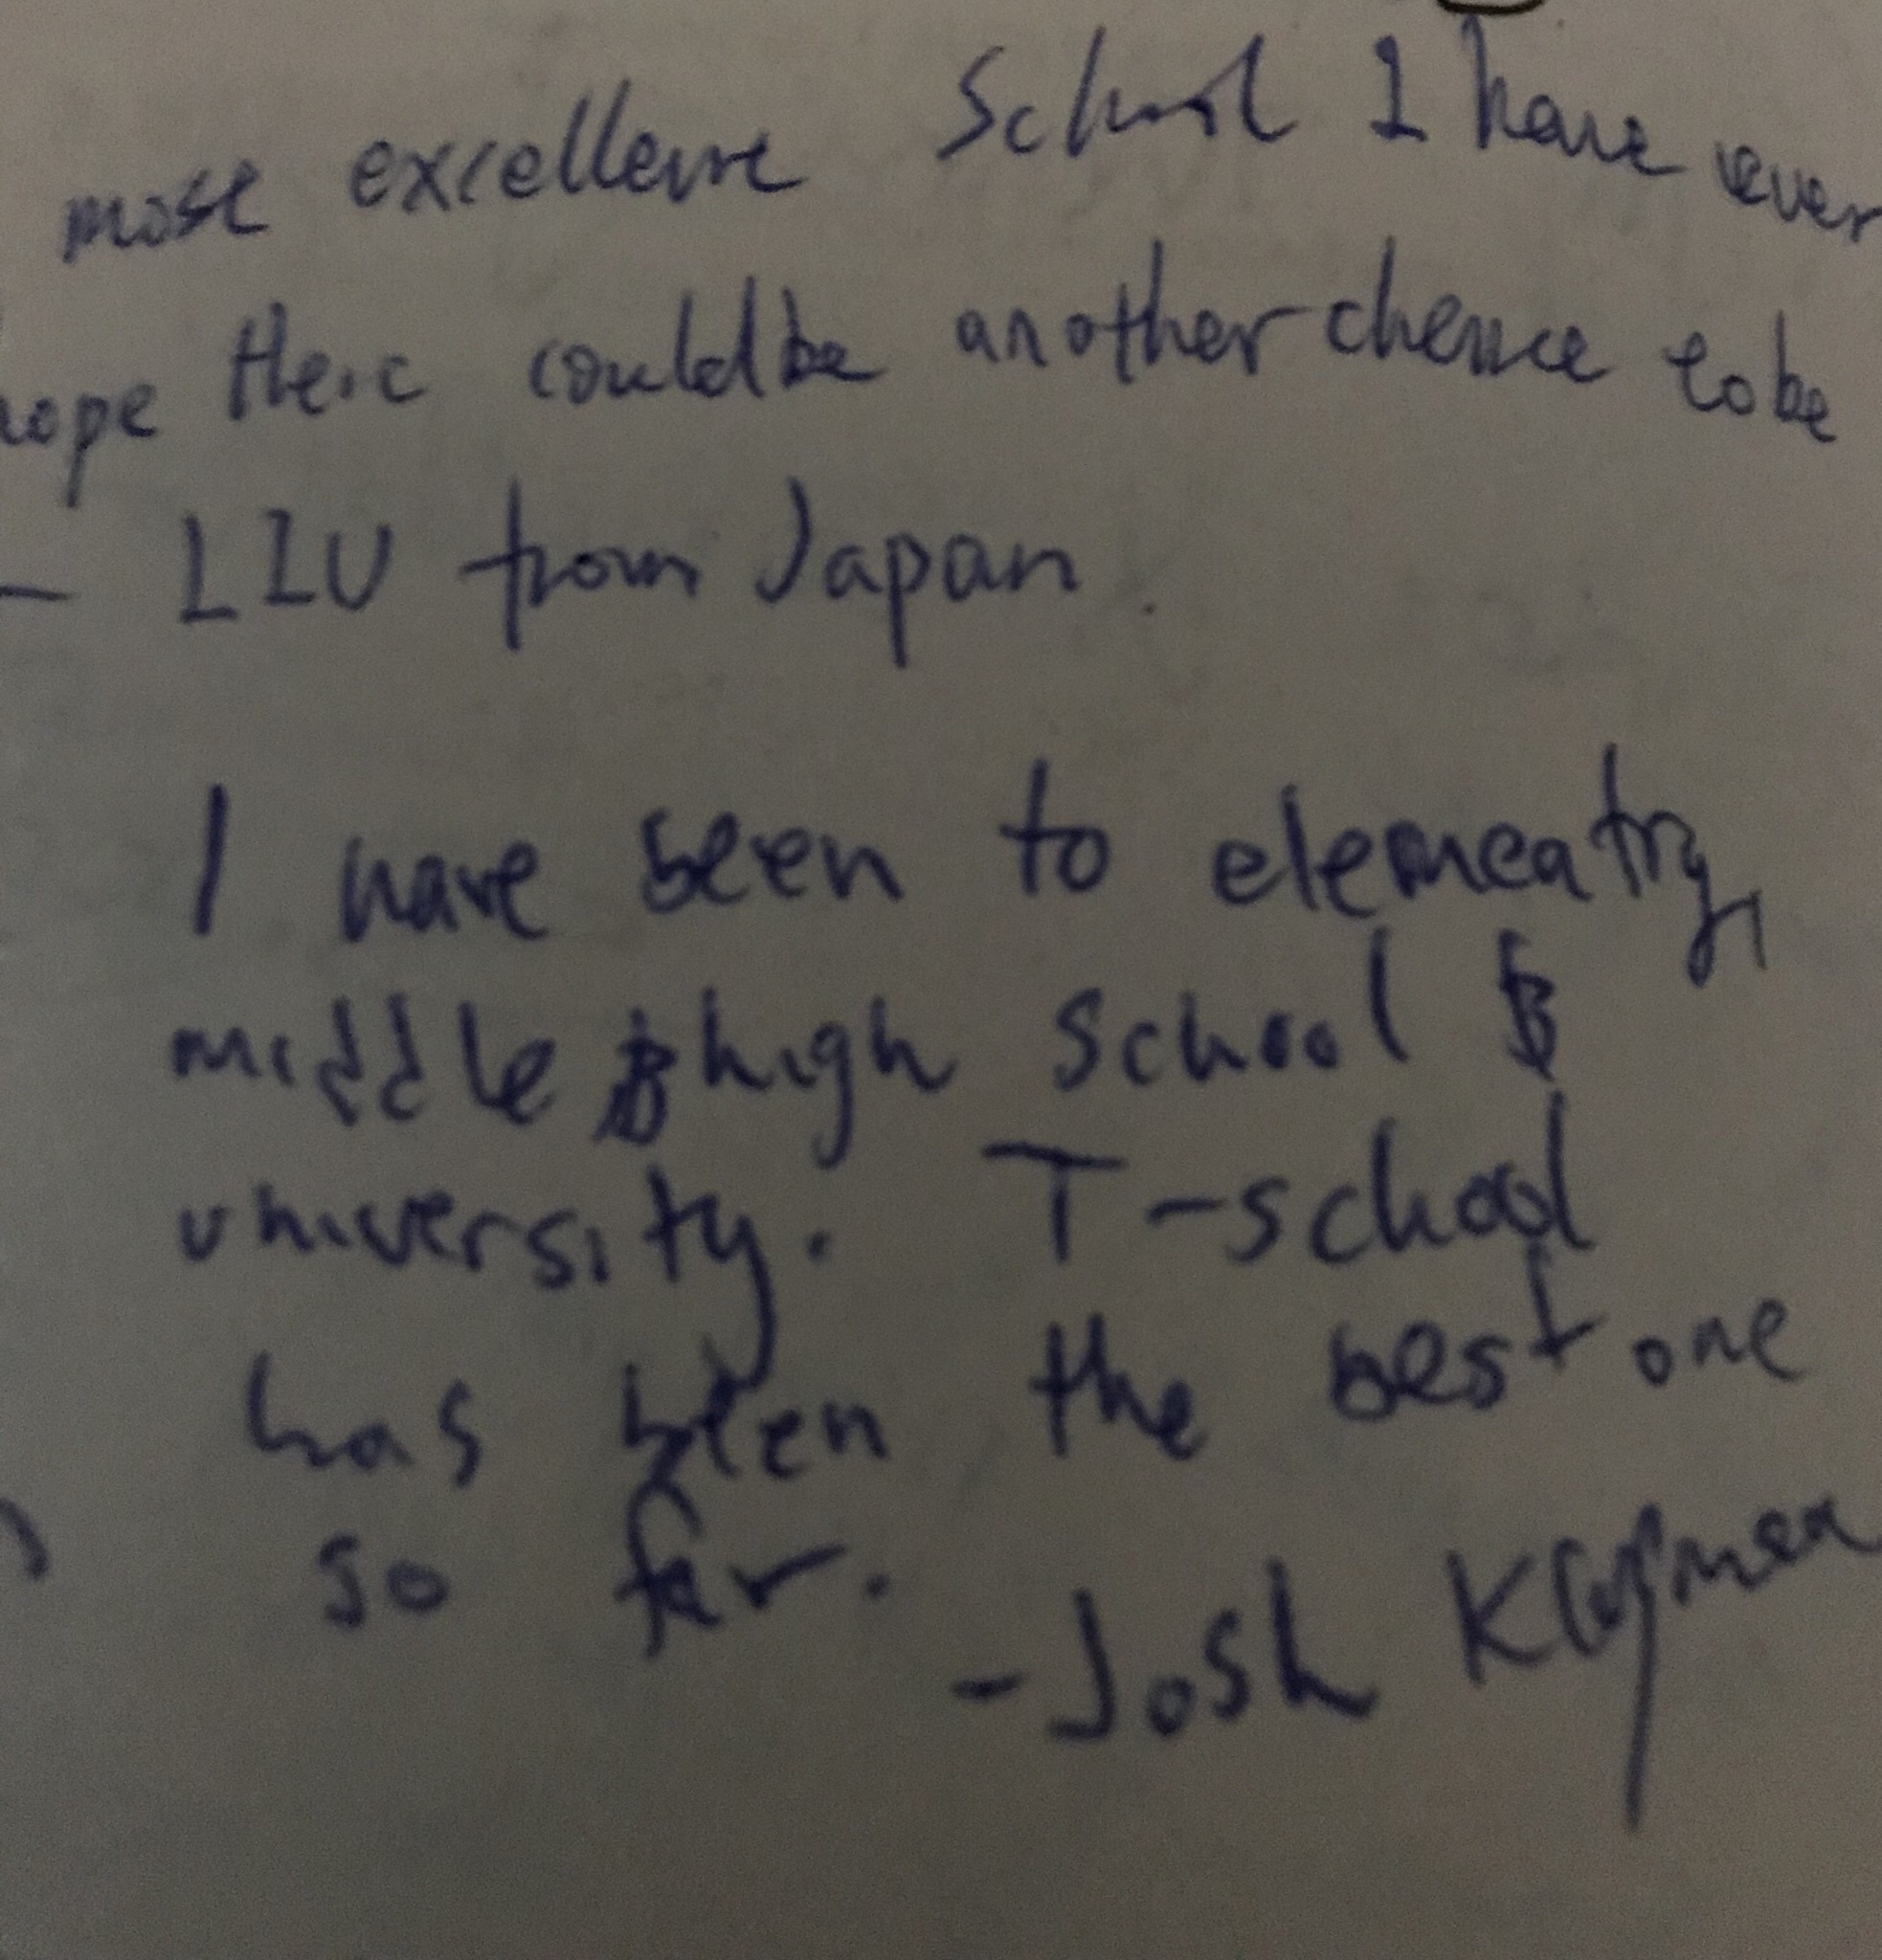 most excellent School I have ever
hope there could be another chence to be
— LIU from Japan.
I have been to elementry,
middle & high school &
university. T-school
has been the best one
so far.
- Josh